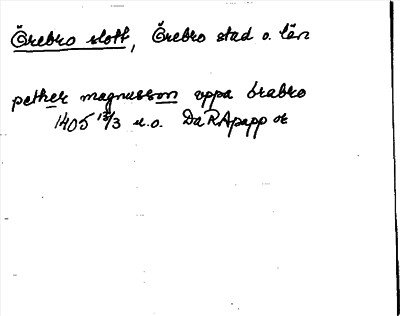 Örebro slott, Örebro stad o. län
pether magnusson vppa örabro
1405 13/3 u.o. DaRApapp or